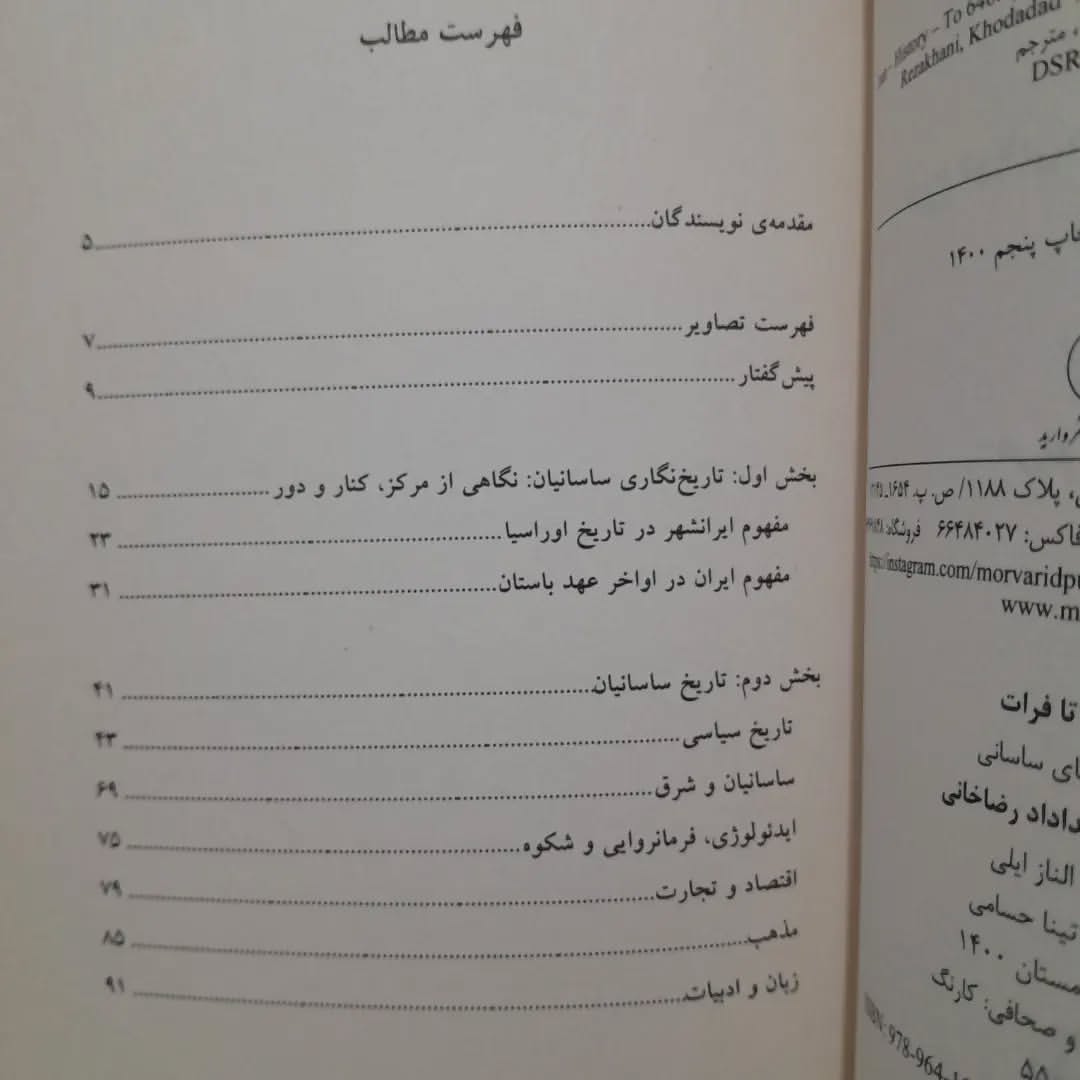 فهرست مطالب
مقدمه‌ی نویسندگان ۵
فهرست تصاویر ۷
پیش‌گفتار ۹
بخش اول: تاریخ‌نگاری ساسانیان: نگاهی از مرکز، کنار و دور ۱۵
مفهوم ایرانشهر در تاریخ اوراسیا ۲۳
مفهوم ایران در اواخر عهد باستان ۳۱
بخش دوم: تاریخ ساسانیان ۴۱
تاریخ سیاسی ۴۳
ساسانیان و شرق ۶۹
ایدئولوژی، فرمانروایی و شکوه ۷۵
اقتصاد و تجارت ۷۹
مذهب ۸۵
زبان و ادبیات ۹۱
History – To 640
Rezakhani, Khodadad
، مترجم
DSR
پنجم ۱۴۰۰
پلاک ۱۱۸۸/ ص. پ. ۱۶۵۴
فاکس: ۶۶۴۸۴۰۲۷ فروشگاه:
instagram.com/morvaridpu
www.m
تا فرات
ساسانی
رضاخانی
الناز ایلی
تینا حسامی
۱۴۰۰
و صحافی: کارنگ
978-964-